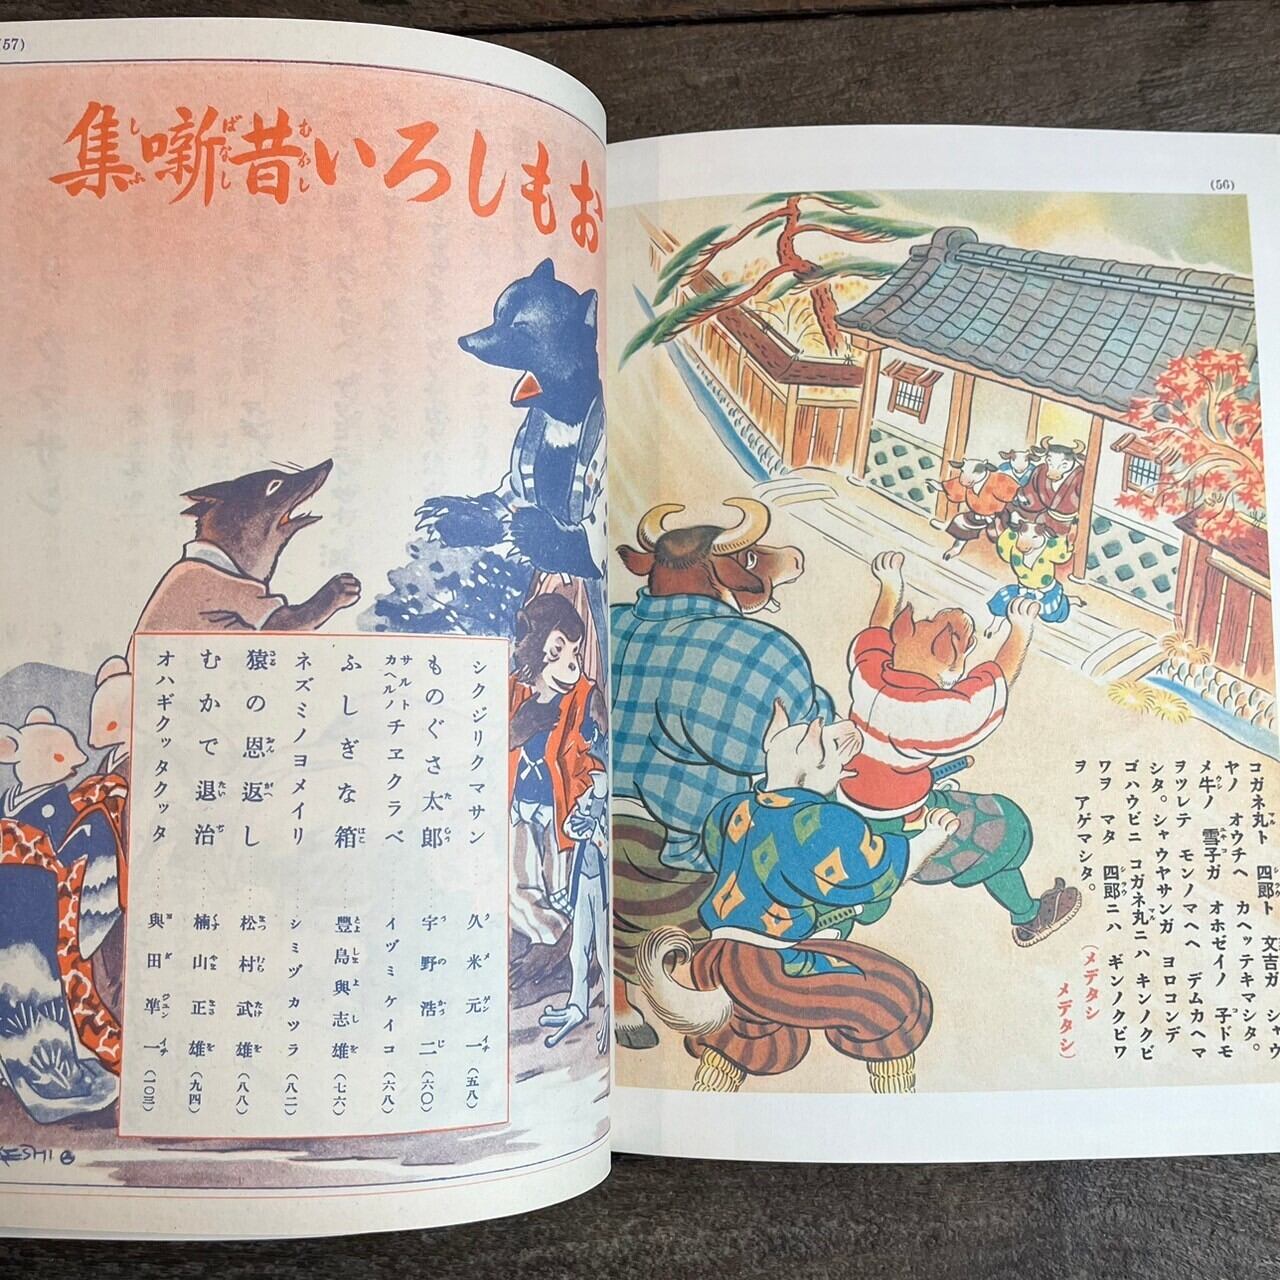 (56)
コガネ丸ト 四郎ト 文吉ガ シャウ
ヤノ オウチヘ カヘッテキマシタ。
メ牛ノ 雪子ガ オホゼイノ 子ドモ
ヲツレテ モンノマヘヘ デムカヘマ
シタ。シャウヤサンガ ヨロコンデ
ゴハウビニ コガネ丸ニハ キンノクビ
ワヲ マタ 四郎ニハ ギンノクビワ
ヲ アゲマシタ。
(メデタシ
メデタシ)
(57)
おもしろい昔噺集
シクジリクマサン……久米元一(五八)
ものぐさ太郎……宇野浩二(六〇)
サルトカヘルノチヱクラベ……イヅミケイコ(六八)
ふしぎな箱……豐島與志雄(七六)
ネズミノヨメイリ……シミヅカツラ(八二)
猿の恩返し……松村武雄(八八)
むかで退治……楠山正雄(九四)
オハギクッタクッタ……與田凖一(一〇三)
KESHI